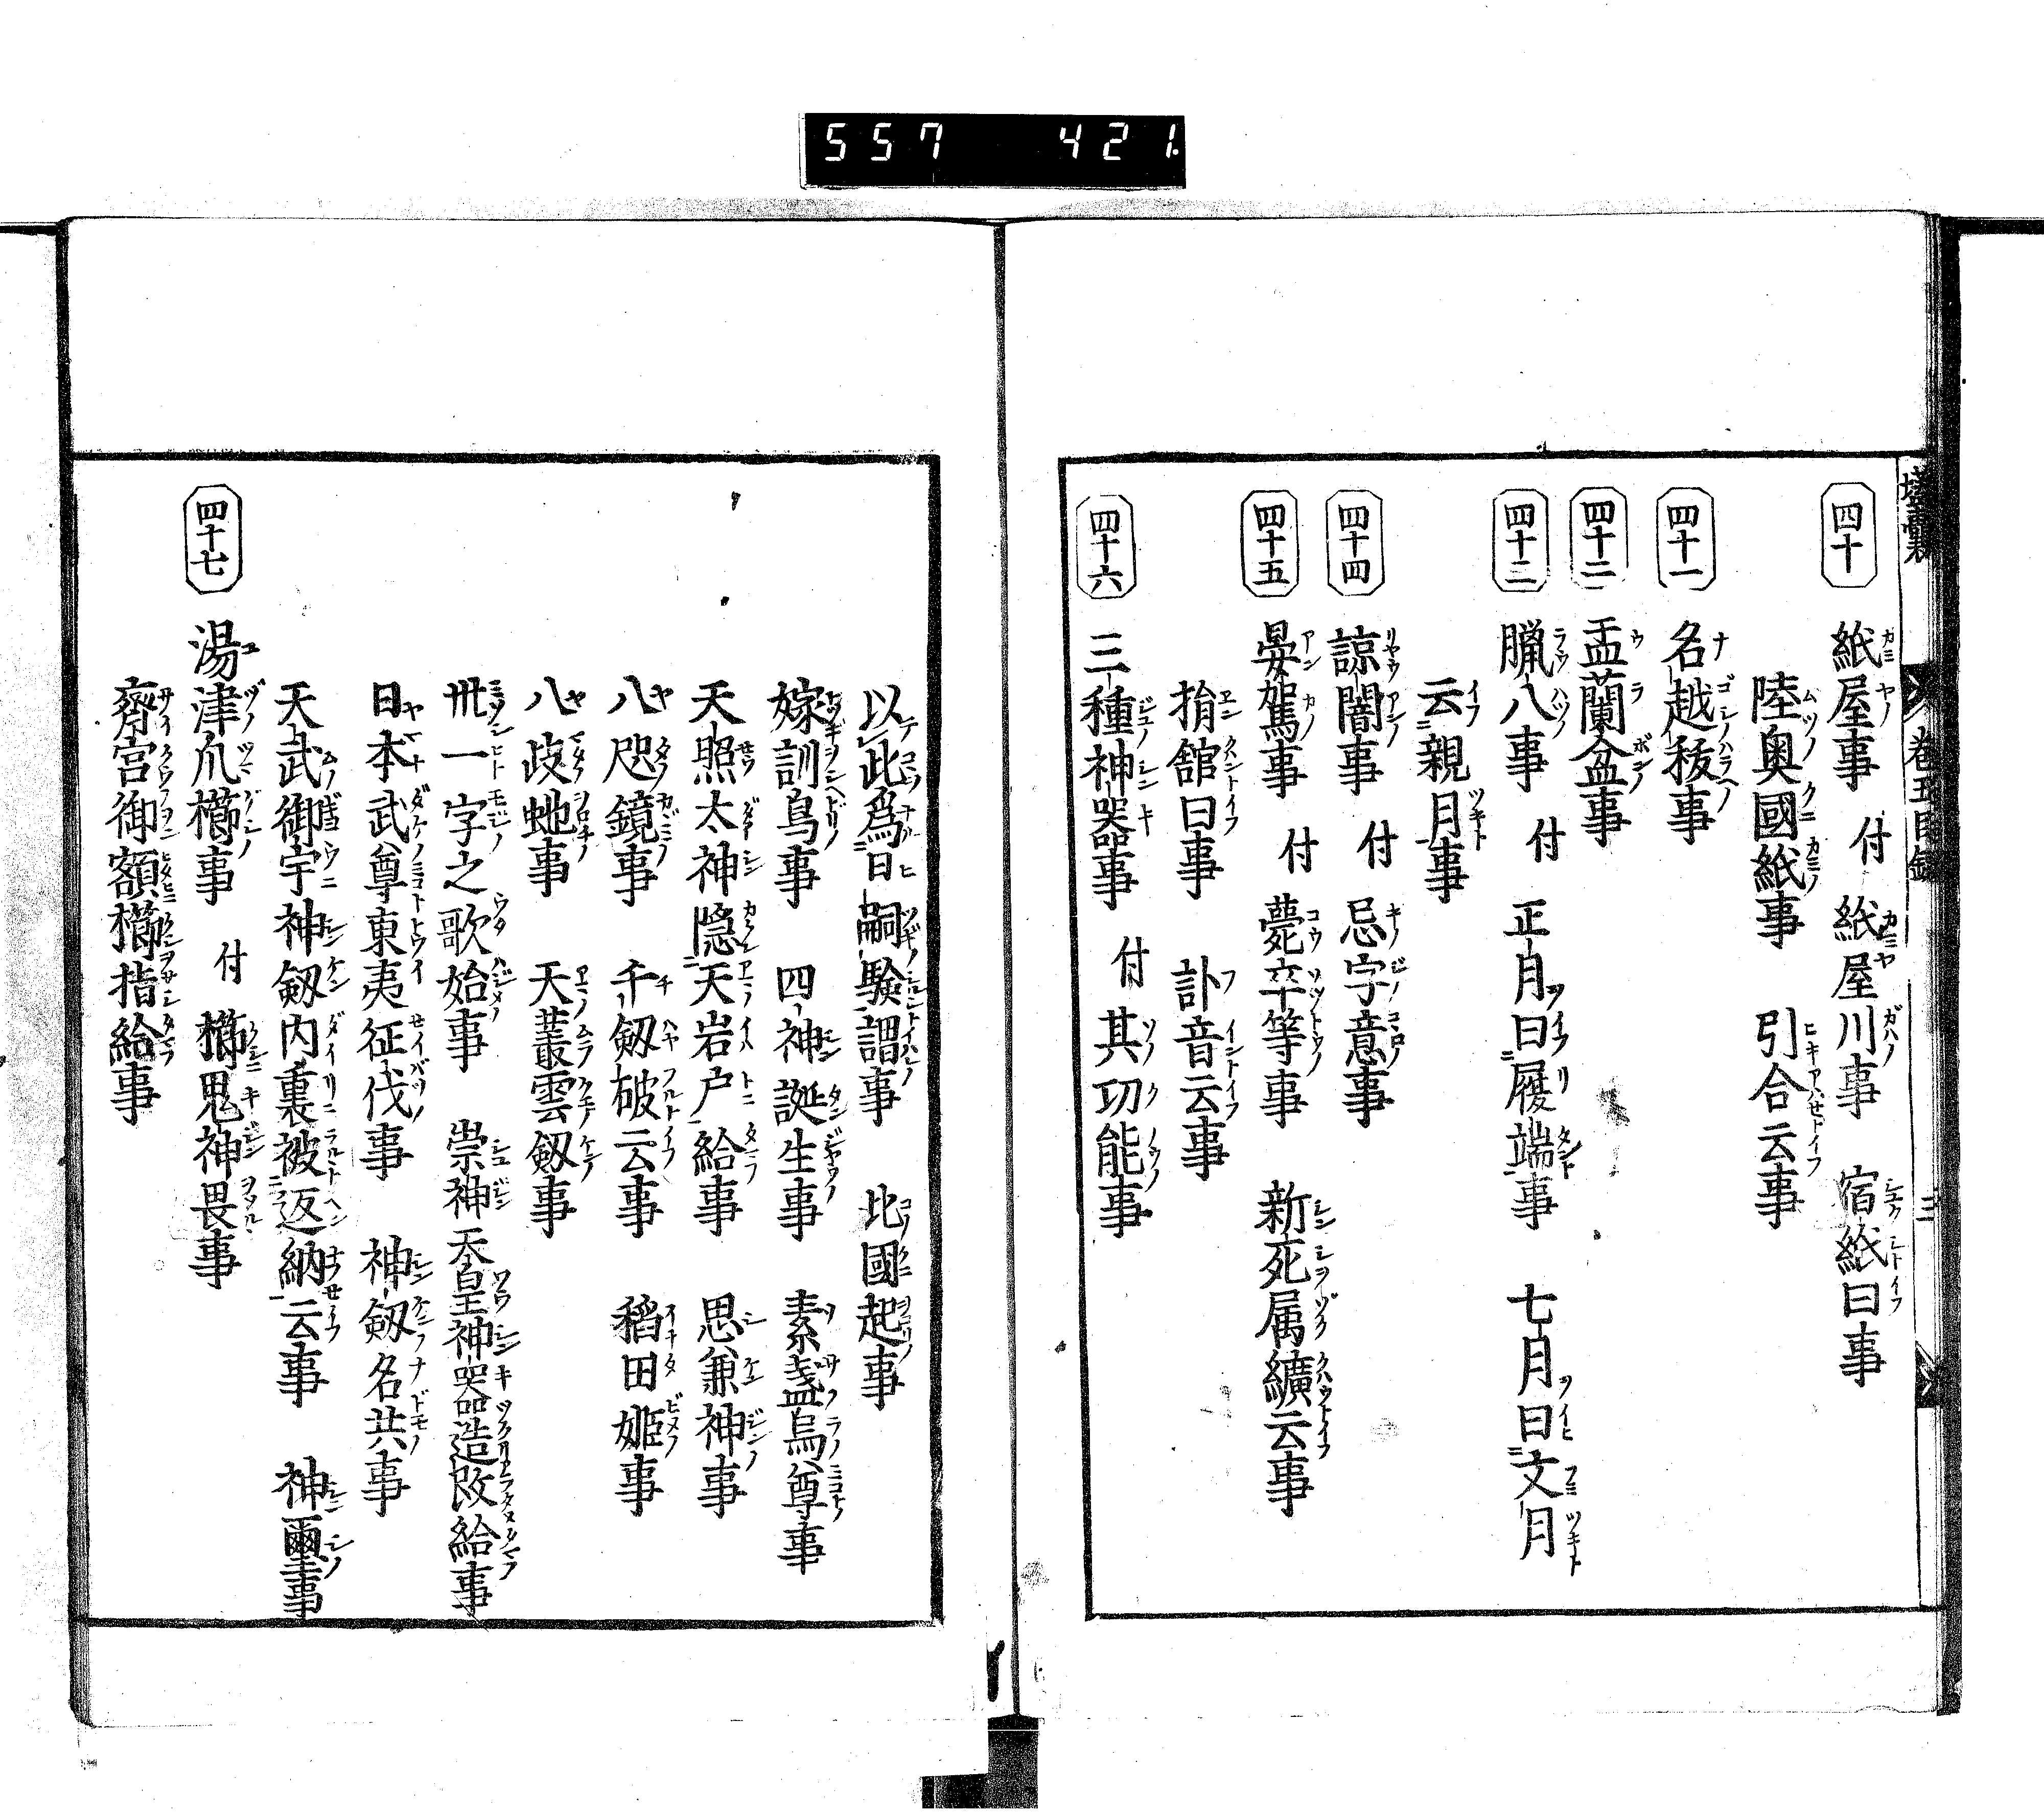 557 421.
四十 紙屋事 付 紙屋川事 宿紙曰事
陸奥國紙事 引合云事
四十一 名越秡事
四十二 盂蘭盆事
四十二 臘八事 付 正月曰履端事 七月曰文月
云親月事
四十四 諒闇事 付 忌字意事
四十五 晏駕事 付 薨卒等事 新死属纊云事
捐舘曰事 訃音云事
四十六 三種神器事 付 其功能事
以此爲日嗣驗謂事 此國起事
嫁訓鳥事 四神誕生事 素盞烏尊事
天照太神隠天岩户給事 思兼神事
八咫鏡事 千剱破云事 稻田姫事
八歧虵事 天叢雲剱事
卅一字之歌始事 崇神天皇神器造改給事
日本武尊東夷征伐事 神剱名共事
天武御宇神剱内裏被返納云事 神璽事
四十七 湯津爪櫛事 付 櫛鬼神畏事
齋宮御額櫛指給事